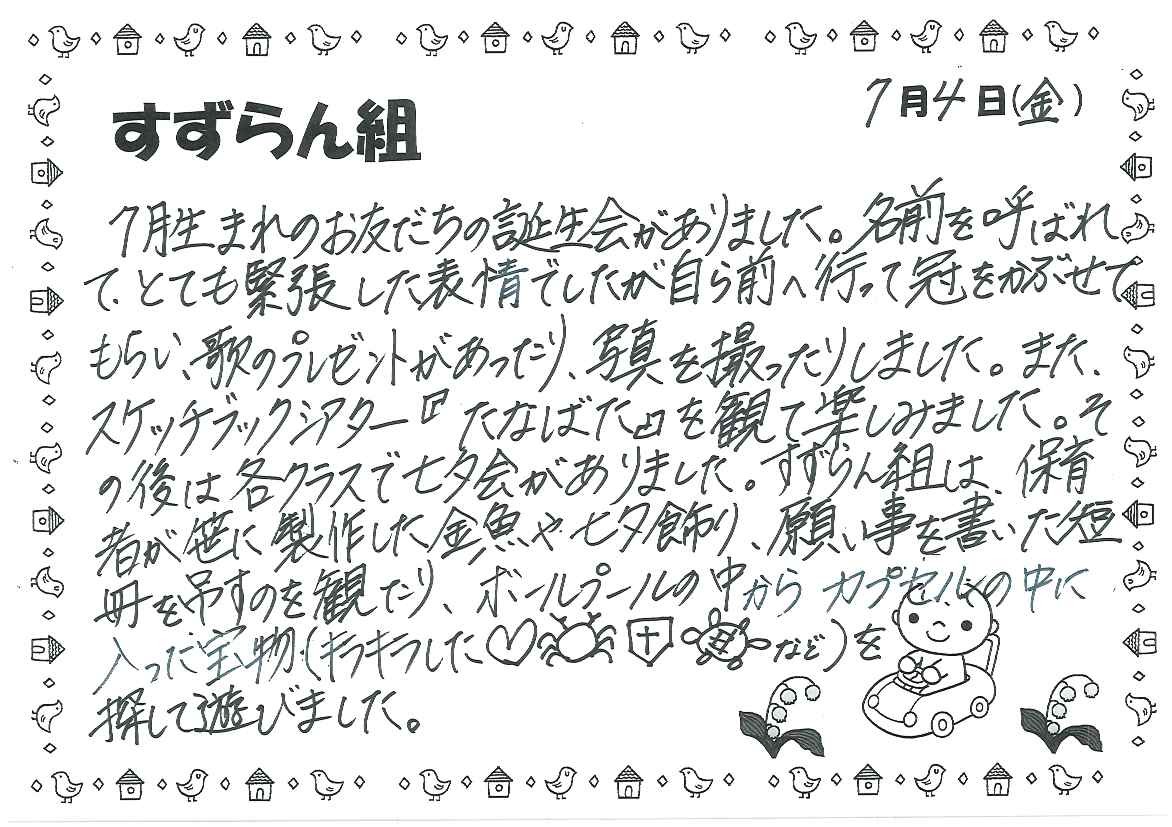 すずらん組
7月4日(金)
7月生まれのお友だちの誕生会がありました。名前を呼ばれ
て、とても緊張した表情でしたが自ら前へ行って冠をかぶせて
もらい、歌のプレゼントがあったり、写真を撮ったりしました。また、
スケッチブックシアター『たなばた』を観て楽しみました。そ
の後は各クラスで七夕会がありました。すずらん組は、保育
者が笹に製作した金魚や七夕飾り、願い事を書いた短
冊を吊すのを観たり、ボールプールの中からカプセルの中に
入った宝物(キラキラした など)を
探して遊びました。